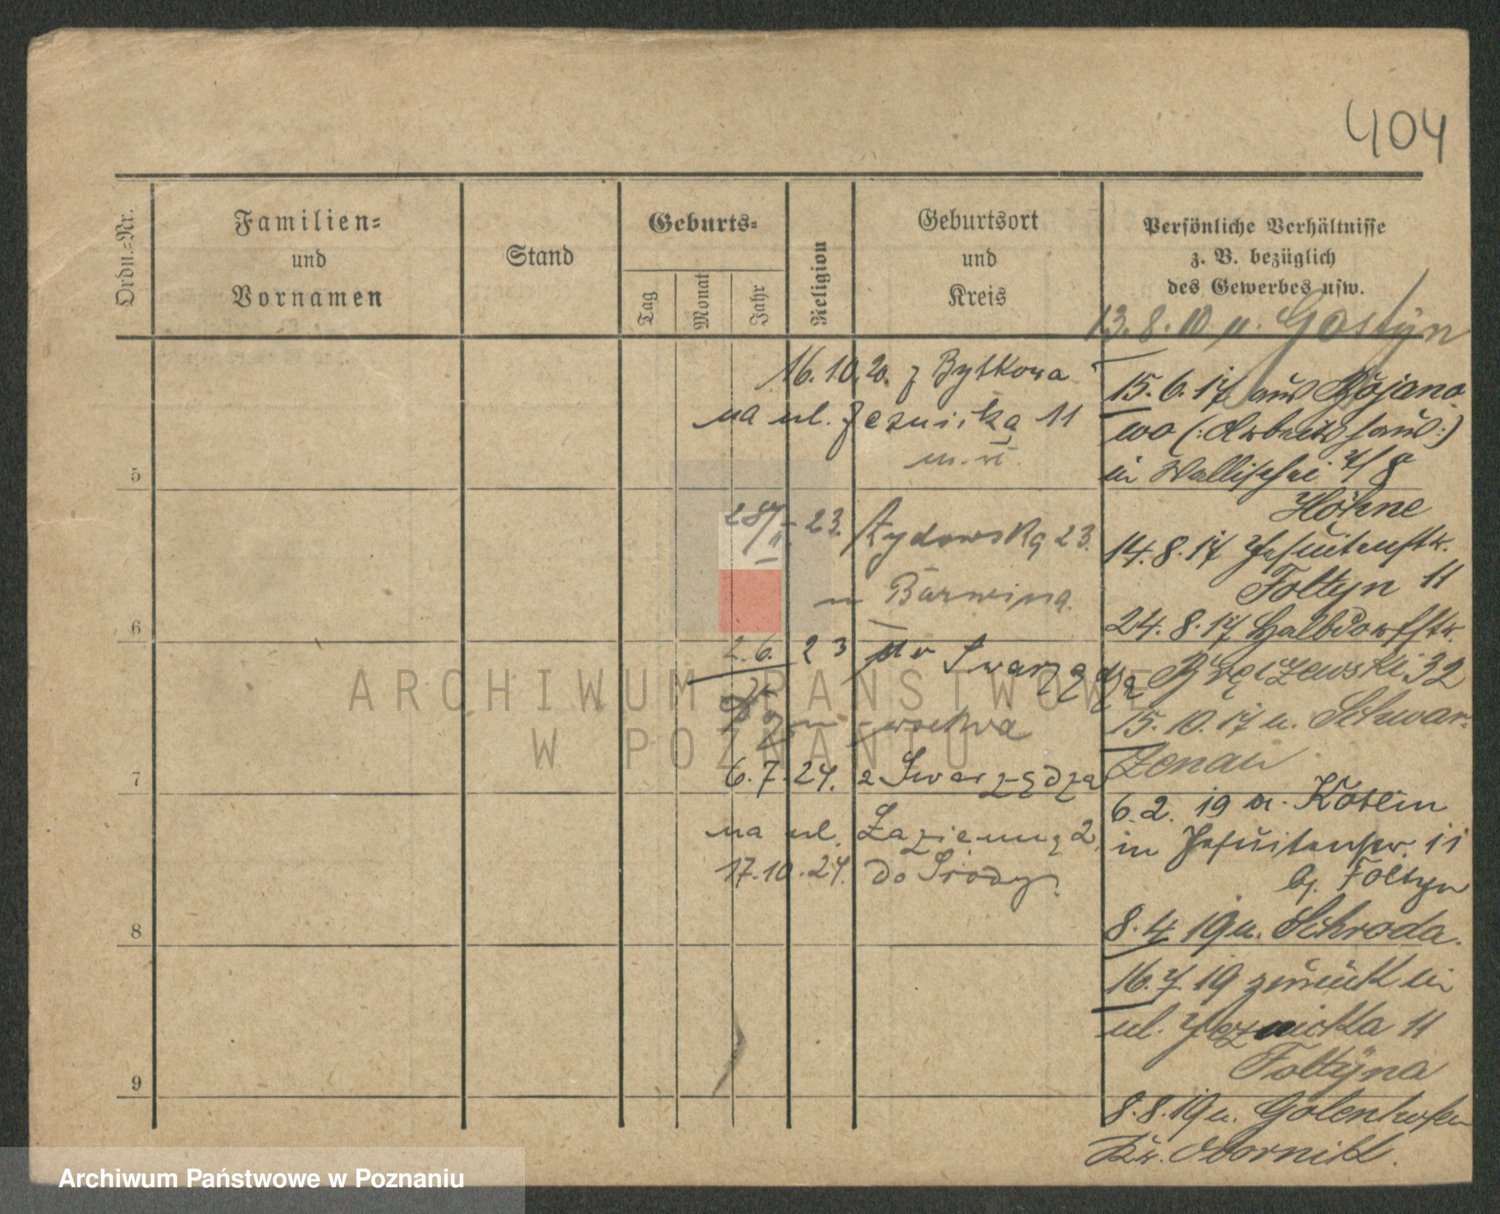 404
Ordn.=Nr.
Familien=
und
Vornamen
Stand
Geburts=
Tag
Monat
Jahr
Religion
Geburtsort
und
Kreis
Persönliche Verhältnisse
z. B. bezüglich
des Gewerbes usw.
13. 8. 10 n. Gostyn
16. 10. 20. z Bytkowa
na ul. Jezuicka 11
5
28/II 23. Żydowska 23.
Bärwing.
6
2. 6. 23 Swarzędza
7
6. 7. 24. z Swarzędza
na ul. Łazienną 2.
17. 10. 24. do Środy.
8
9
15. 6. 17 aus Bojano-
wo (: Arbeitshaus :)
in Wallischei 7/8
Höhne
14. 8. 17 Jesuitenstr.
Foltyn 11
24. 8. 17 Halbdorfstr.
32
15. 10. 17 n. Schwar-
zenau
6. 2. 19 a. Kotlin
in Jesuitenstr. 11
bj. Foltyn
8. 4. 19 n. Schroda.
16. 7. 19 zurück in
ul. Jezuicka 11
Foltyna
8. 8. 19 n. Golenhofen
Kr. Obornik.
ARCHIWUM PAŃSTWOWE
W POZNANIU
Archiwum Państwowe w Poznaniu